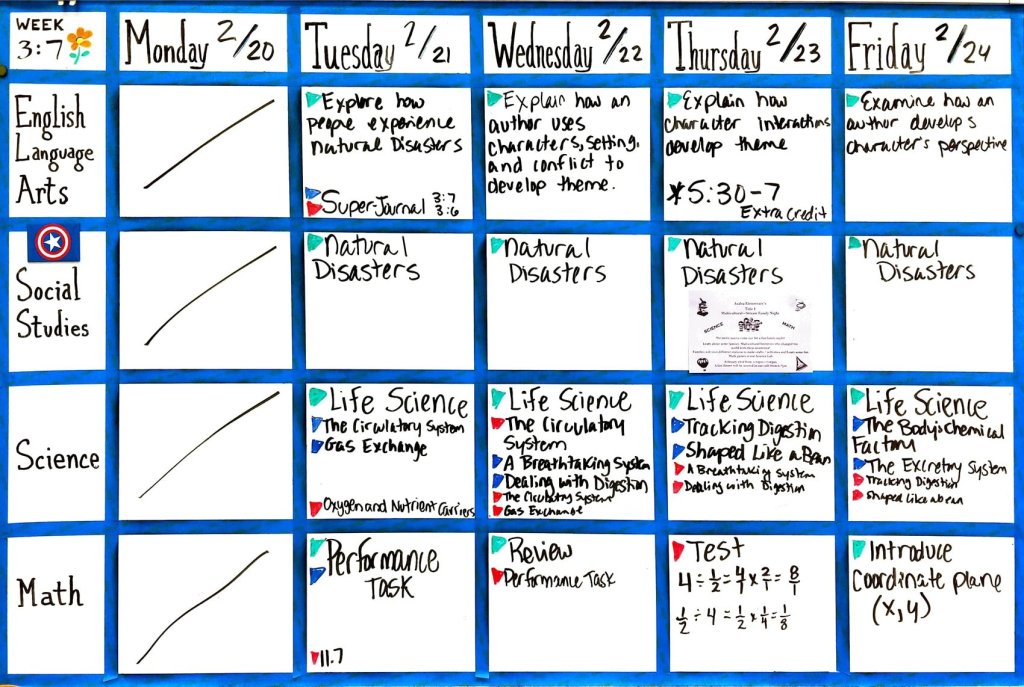 WEEK
3:7
Monday 2/20
Tuesday 2/21
Wednesday 2/22
Thursday 2/23
Friday 2/24
English
Language
Arts
Explore how
people experience
natural Disasters
Super-Journal 3:7
3:6
Explain how an
author uses
characters, setting,
and conflict to
develop theme.
Explain how
character interactions
develop theme
*5:30-7
Extra Credit
Examine how an
author develops
character's perspective
Social
Studies
Natural
Disasters
Natural
Disasters
Natural
Disasters
SCIENCE
MATH
Natural
Disasters
Science
Life Science
The Circulatory System
Gas Exchange
Oxygen and Nutrient Carriers
Life Science
The Circulatory
System
A Breathtaking System
Dealing with Digestion
The Circulatory System
Gas Exchange
Life Science
Tracking Digestion
Shaped Like a Bean
A Breathtaking System
Dealing with Digestion
Life Science
The Body's chemical
Factory
The Excretory System
Tracking Digestion
Shaped Like a bean
Math
Performance
Task
11.7
Review
Performance Task
Test
4 ÷ 1/2 = 4/1 × 2/1 = 8/1
1/2 ÷ 4 = 1/2 × 1/4 = 1/8
Introduce
coordinate plane
(x,y)